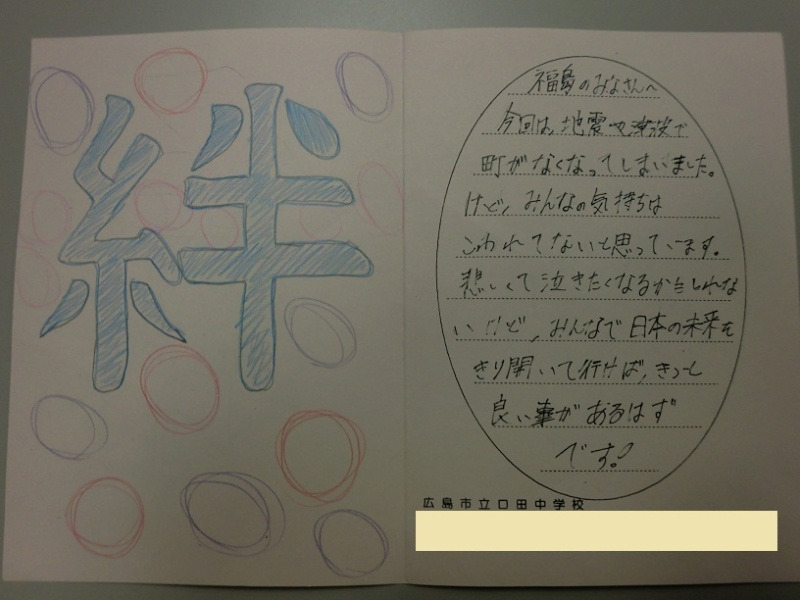 絆
福島のみなさんへ
今回は、地震や津波で
町がなくなってしまいました。
けど、みんなの気持ちは
こわれてないと思っています。
悲しくて泣きたくなるかもしれな
いけど、みんなで日本の未来を
きり開いて行けば、きっと
良い事があるはず
です。
広島市立口田中学校